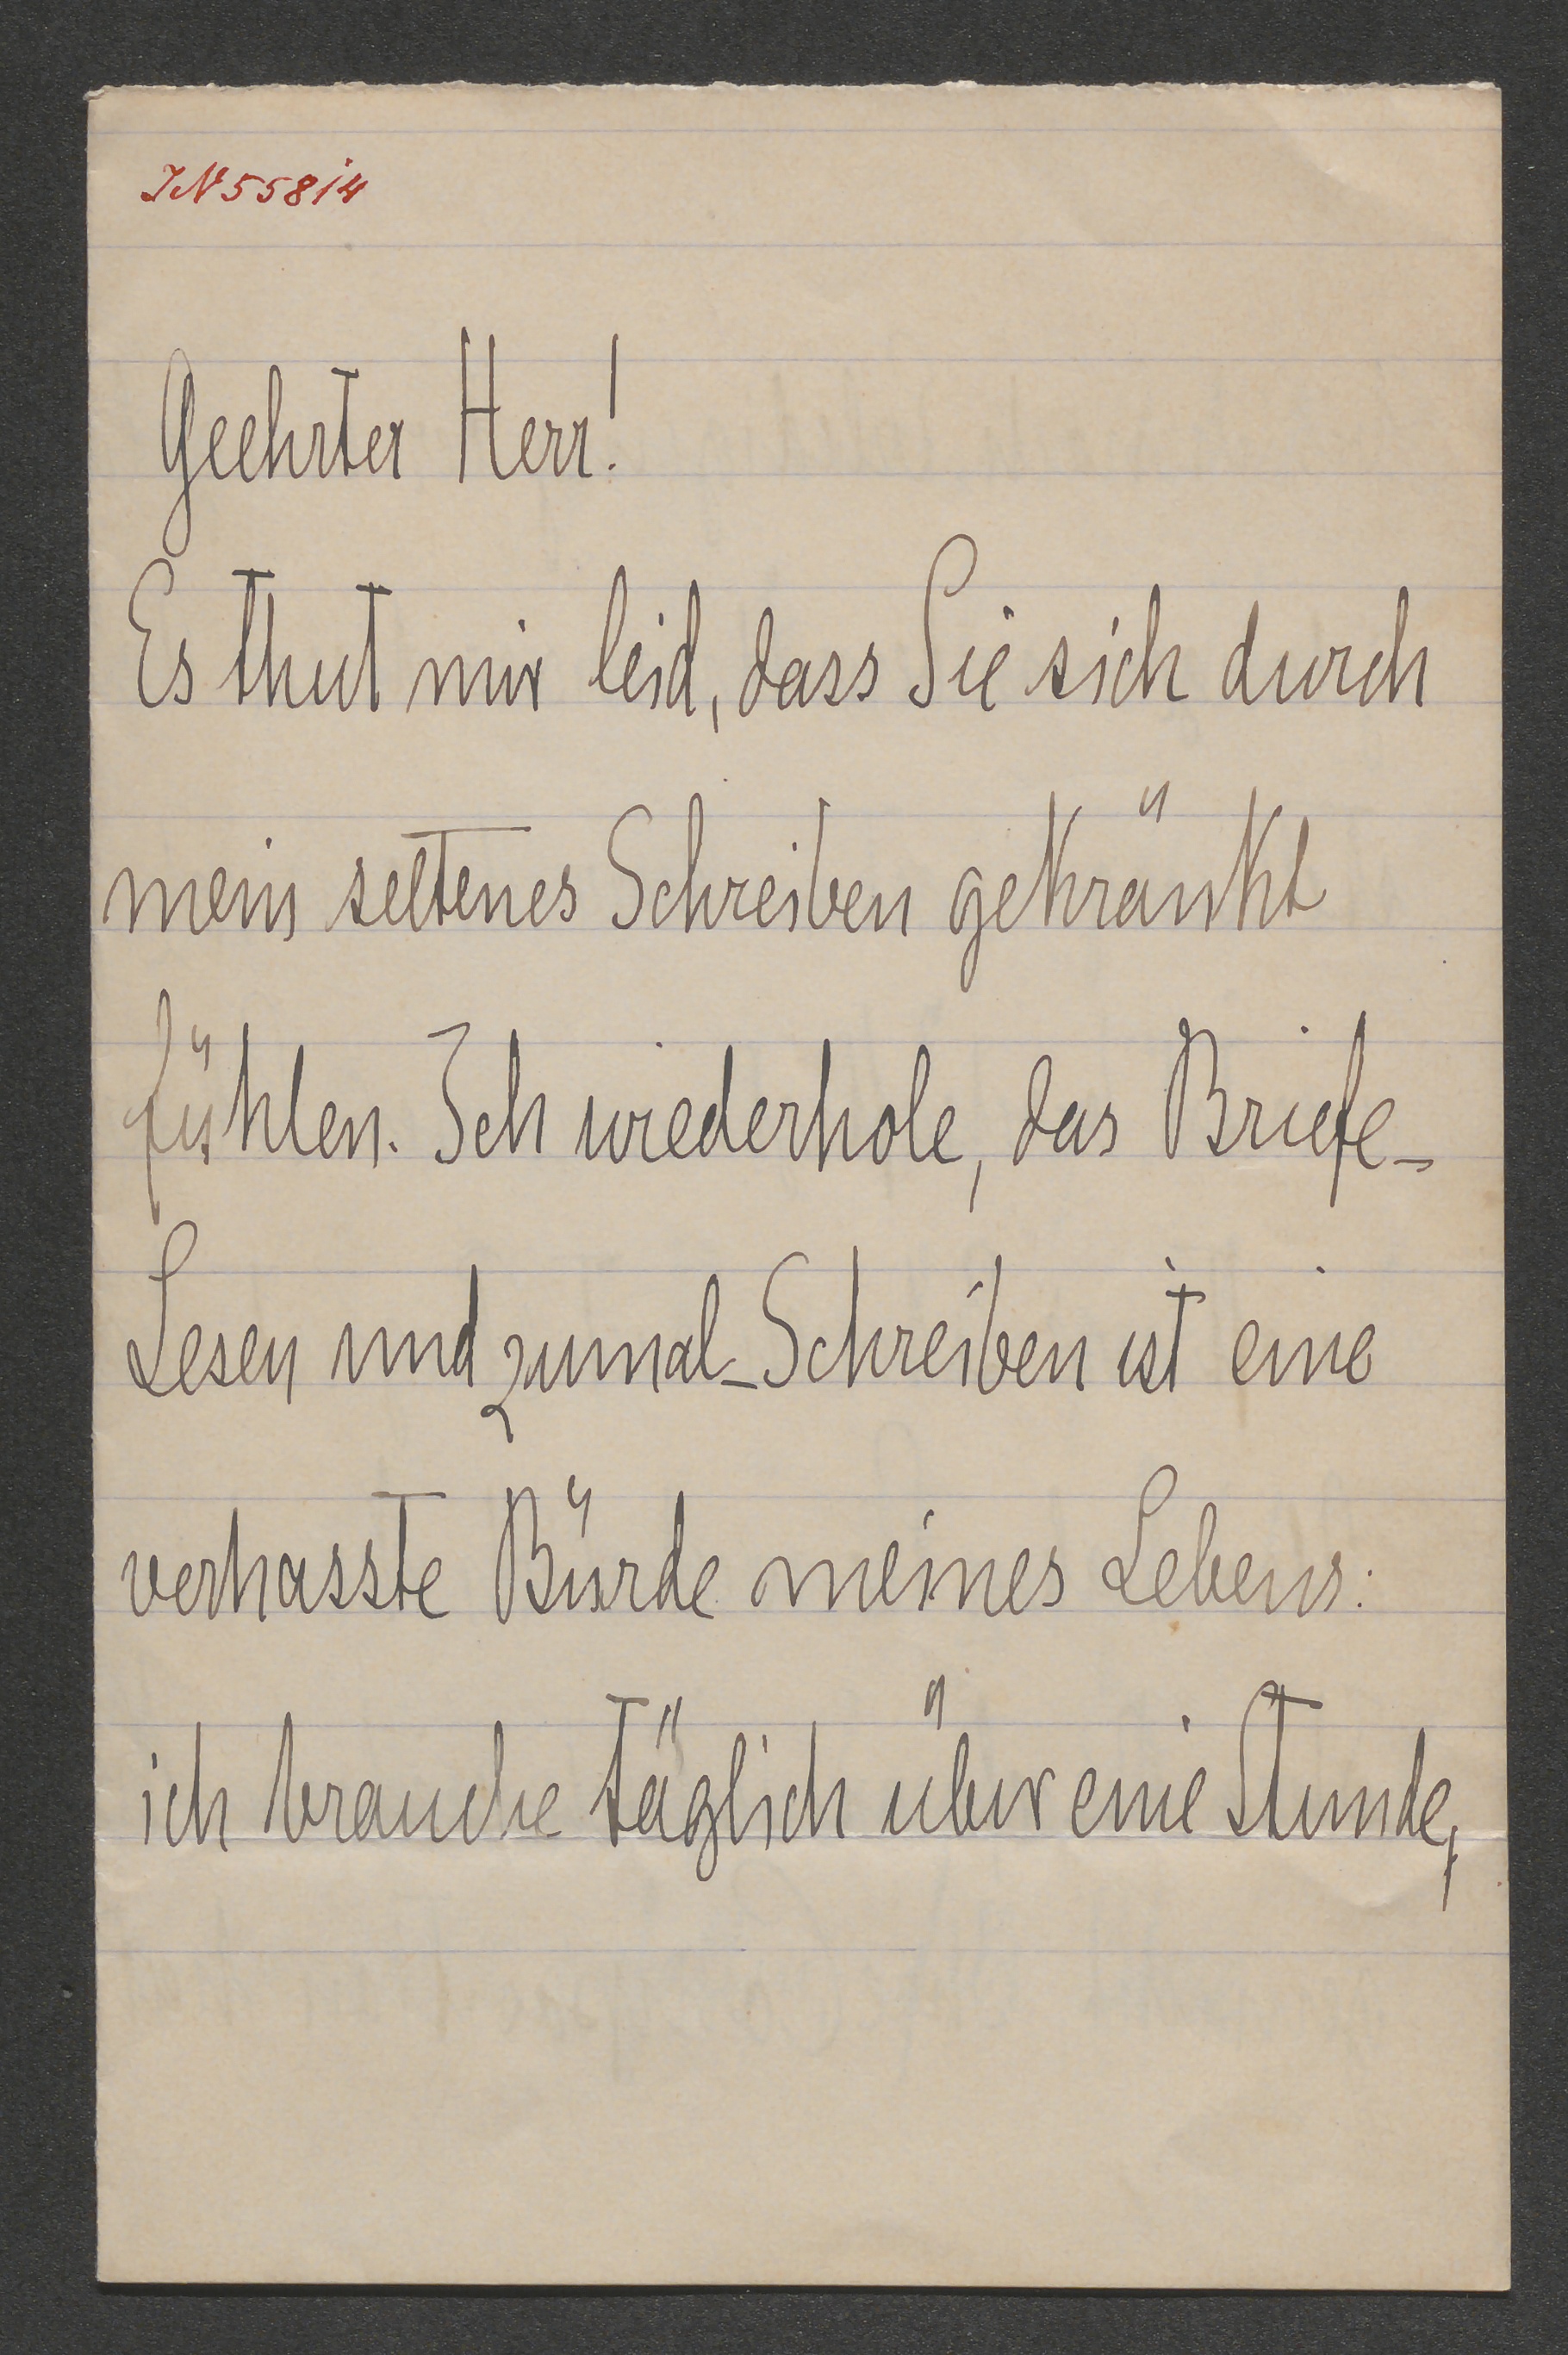 IN 55814
Geehrter Herr!
Es thut mir leid, dass Sie sich durch
mein seltenes Schreiben gekränkt
fühlen. Ich wiederhole, das Briefe-
Lesen und zumal-Schreiben ist eine
verhasste Bürde meines Lebens:
ich brauche täglich über eine Stunde,